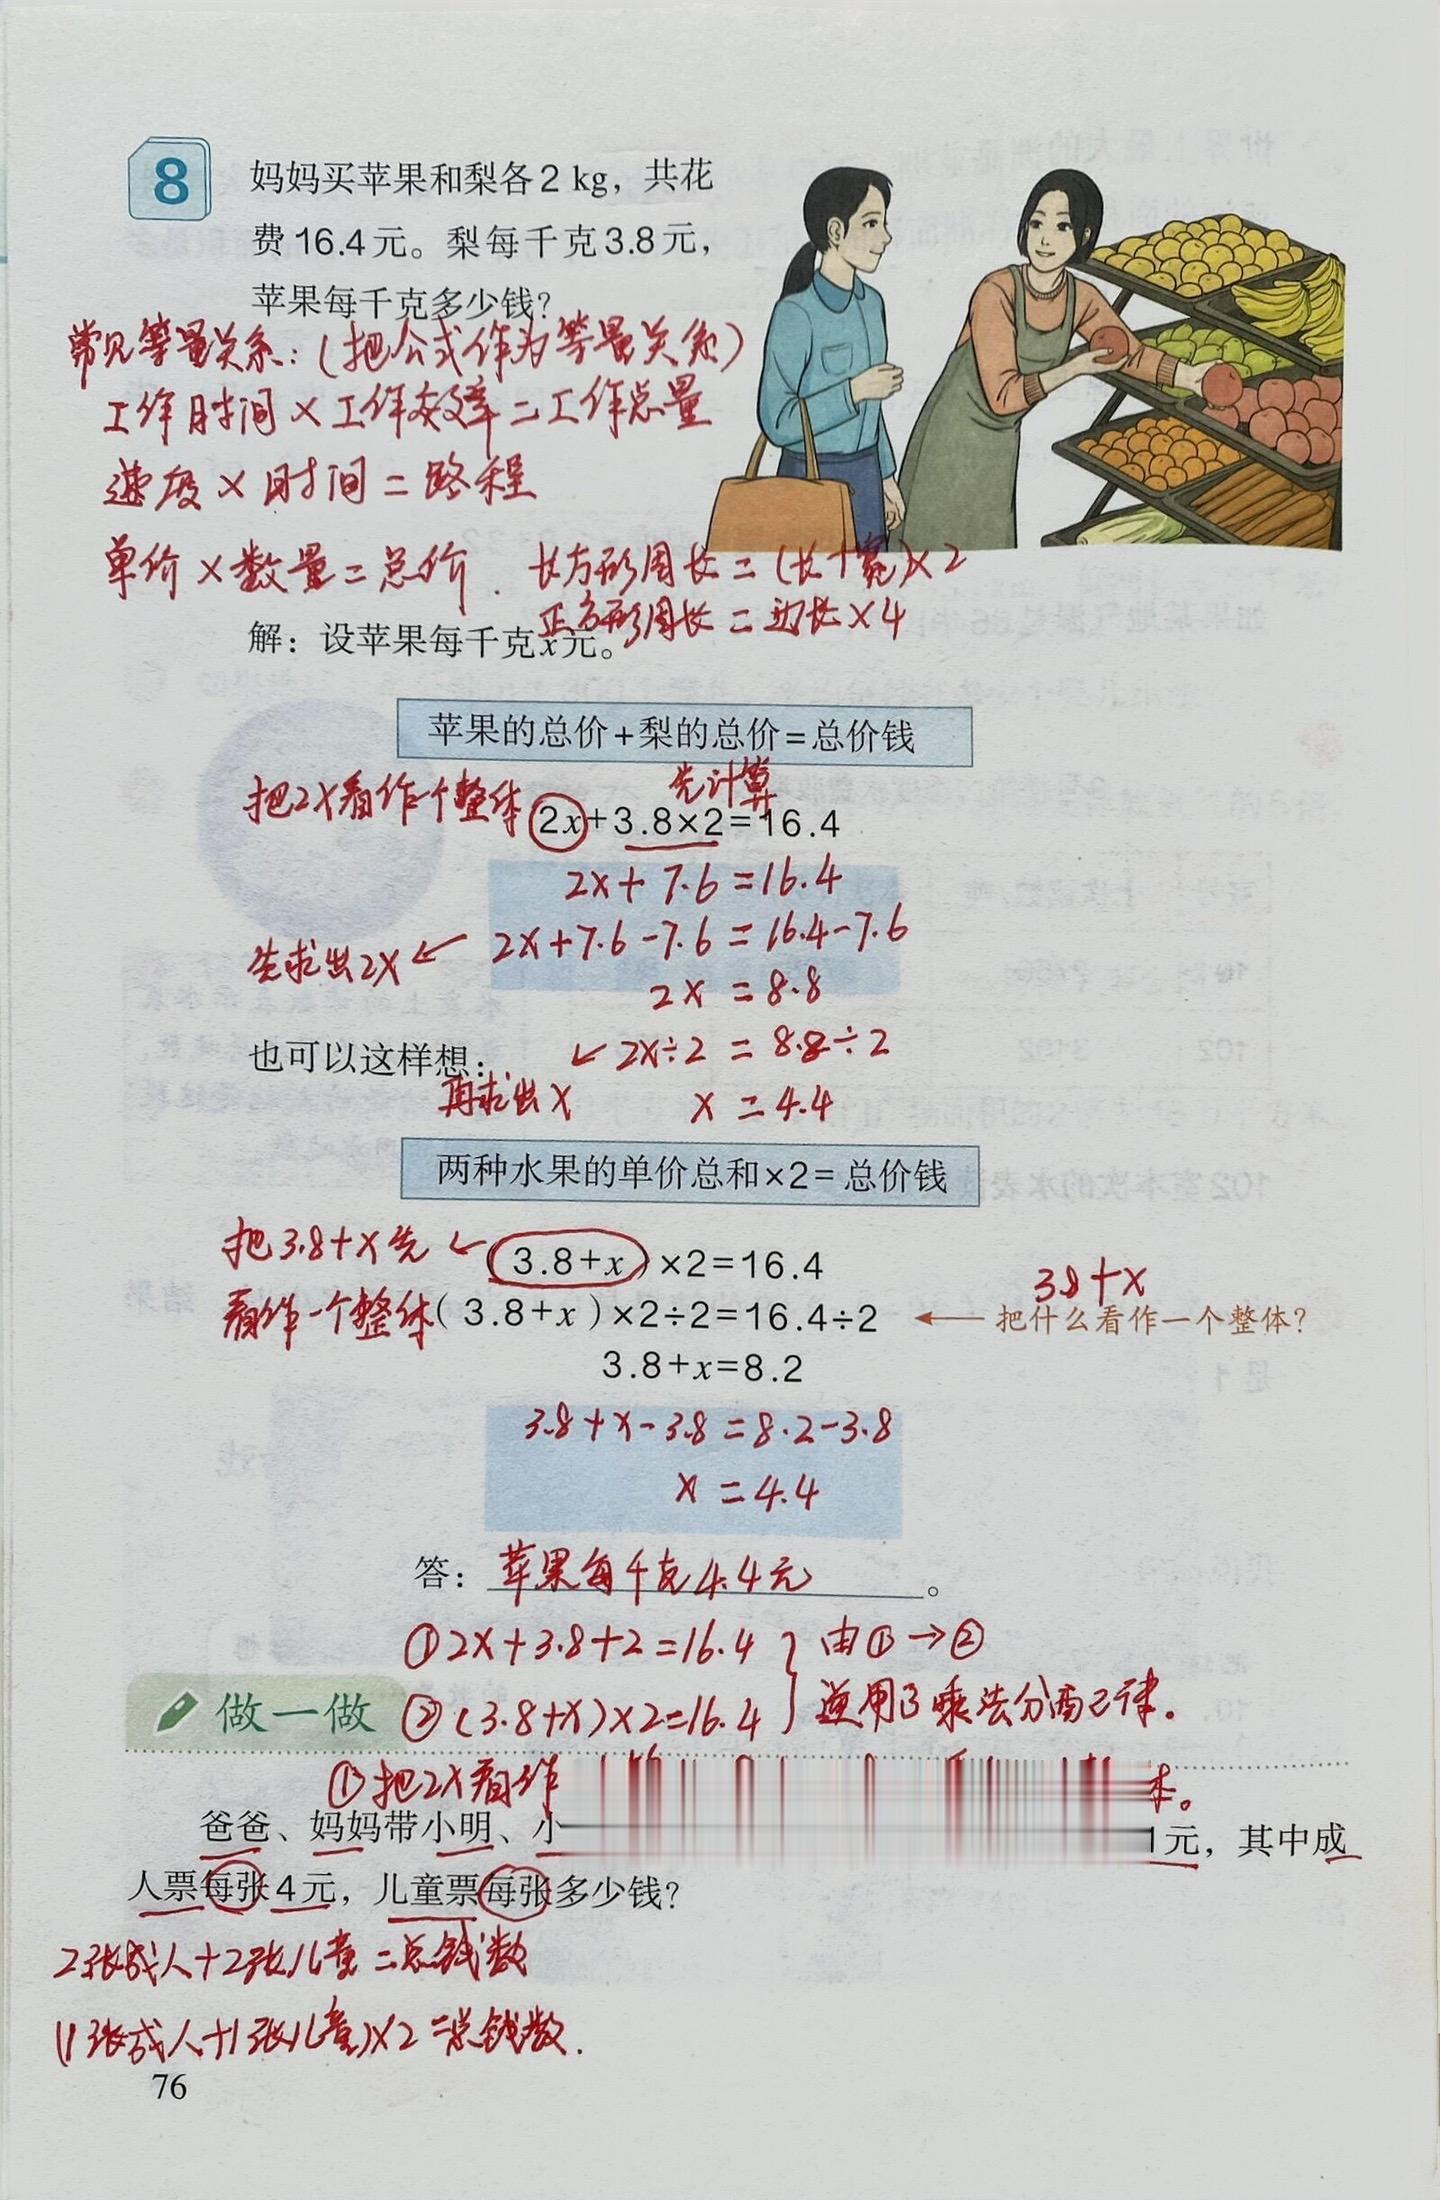 8
妈妈买苹果和梨各2 kg，共花
费16.4元。梨每千克3.8元，
苹果每千克多少钱？
常见等量关系：(把公式作为等量关系)
工作时间×工作效率=工作总量
速度×时间=路程
单价×数量=总价.
长方形周长=(长+宽)×2
正方形周长=边长×4
解：设苹果每千克x元。
苹果的总价+梨的总价=总价钱
先计算
把2x看作个整体 2x+3.8×2=16.4
2x+7.6=16.4
先求出2x ← 2x+7.6-7.6=16.4-7.6
2x=8.8
也可以这样想：
↙ 2x÷2=8.8÷2
再求出x
x=4.4
两种水果的单价总和×2=总价钱
把3.8+x先 ↙ (3.8+x)×2=16.4
看作一个整体
(3.8+x)×2÷2=16.4÷2
3.8+x
← 把什么看作一个整体？
3.8+x=8.2
3.8+x-3.8=8.2-3.8
x=4.4
答：苹果每千克4.4元。
①2x+3.8+2=16.4
②(3.8+x)×2=16.4
由①→②
运用了乘法分配律。
做一做
①把2x看作
爸爸、妈妈带小明、小
1元，其中成
人票每张4元，儿童票每张多少钱？
2张成人+2张儿童=总钱数
(1张成人+1张儿童)×2=总钱数.
76